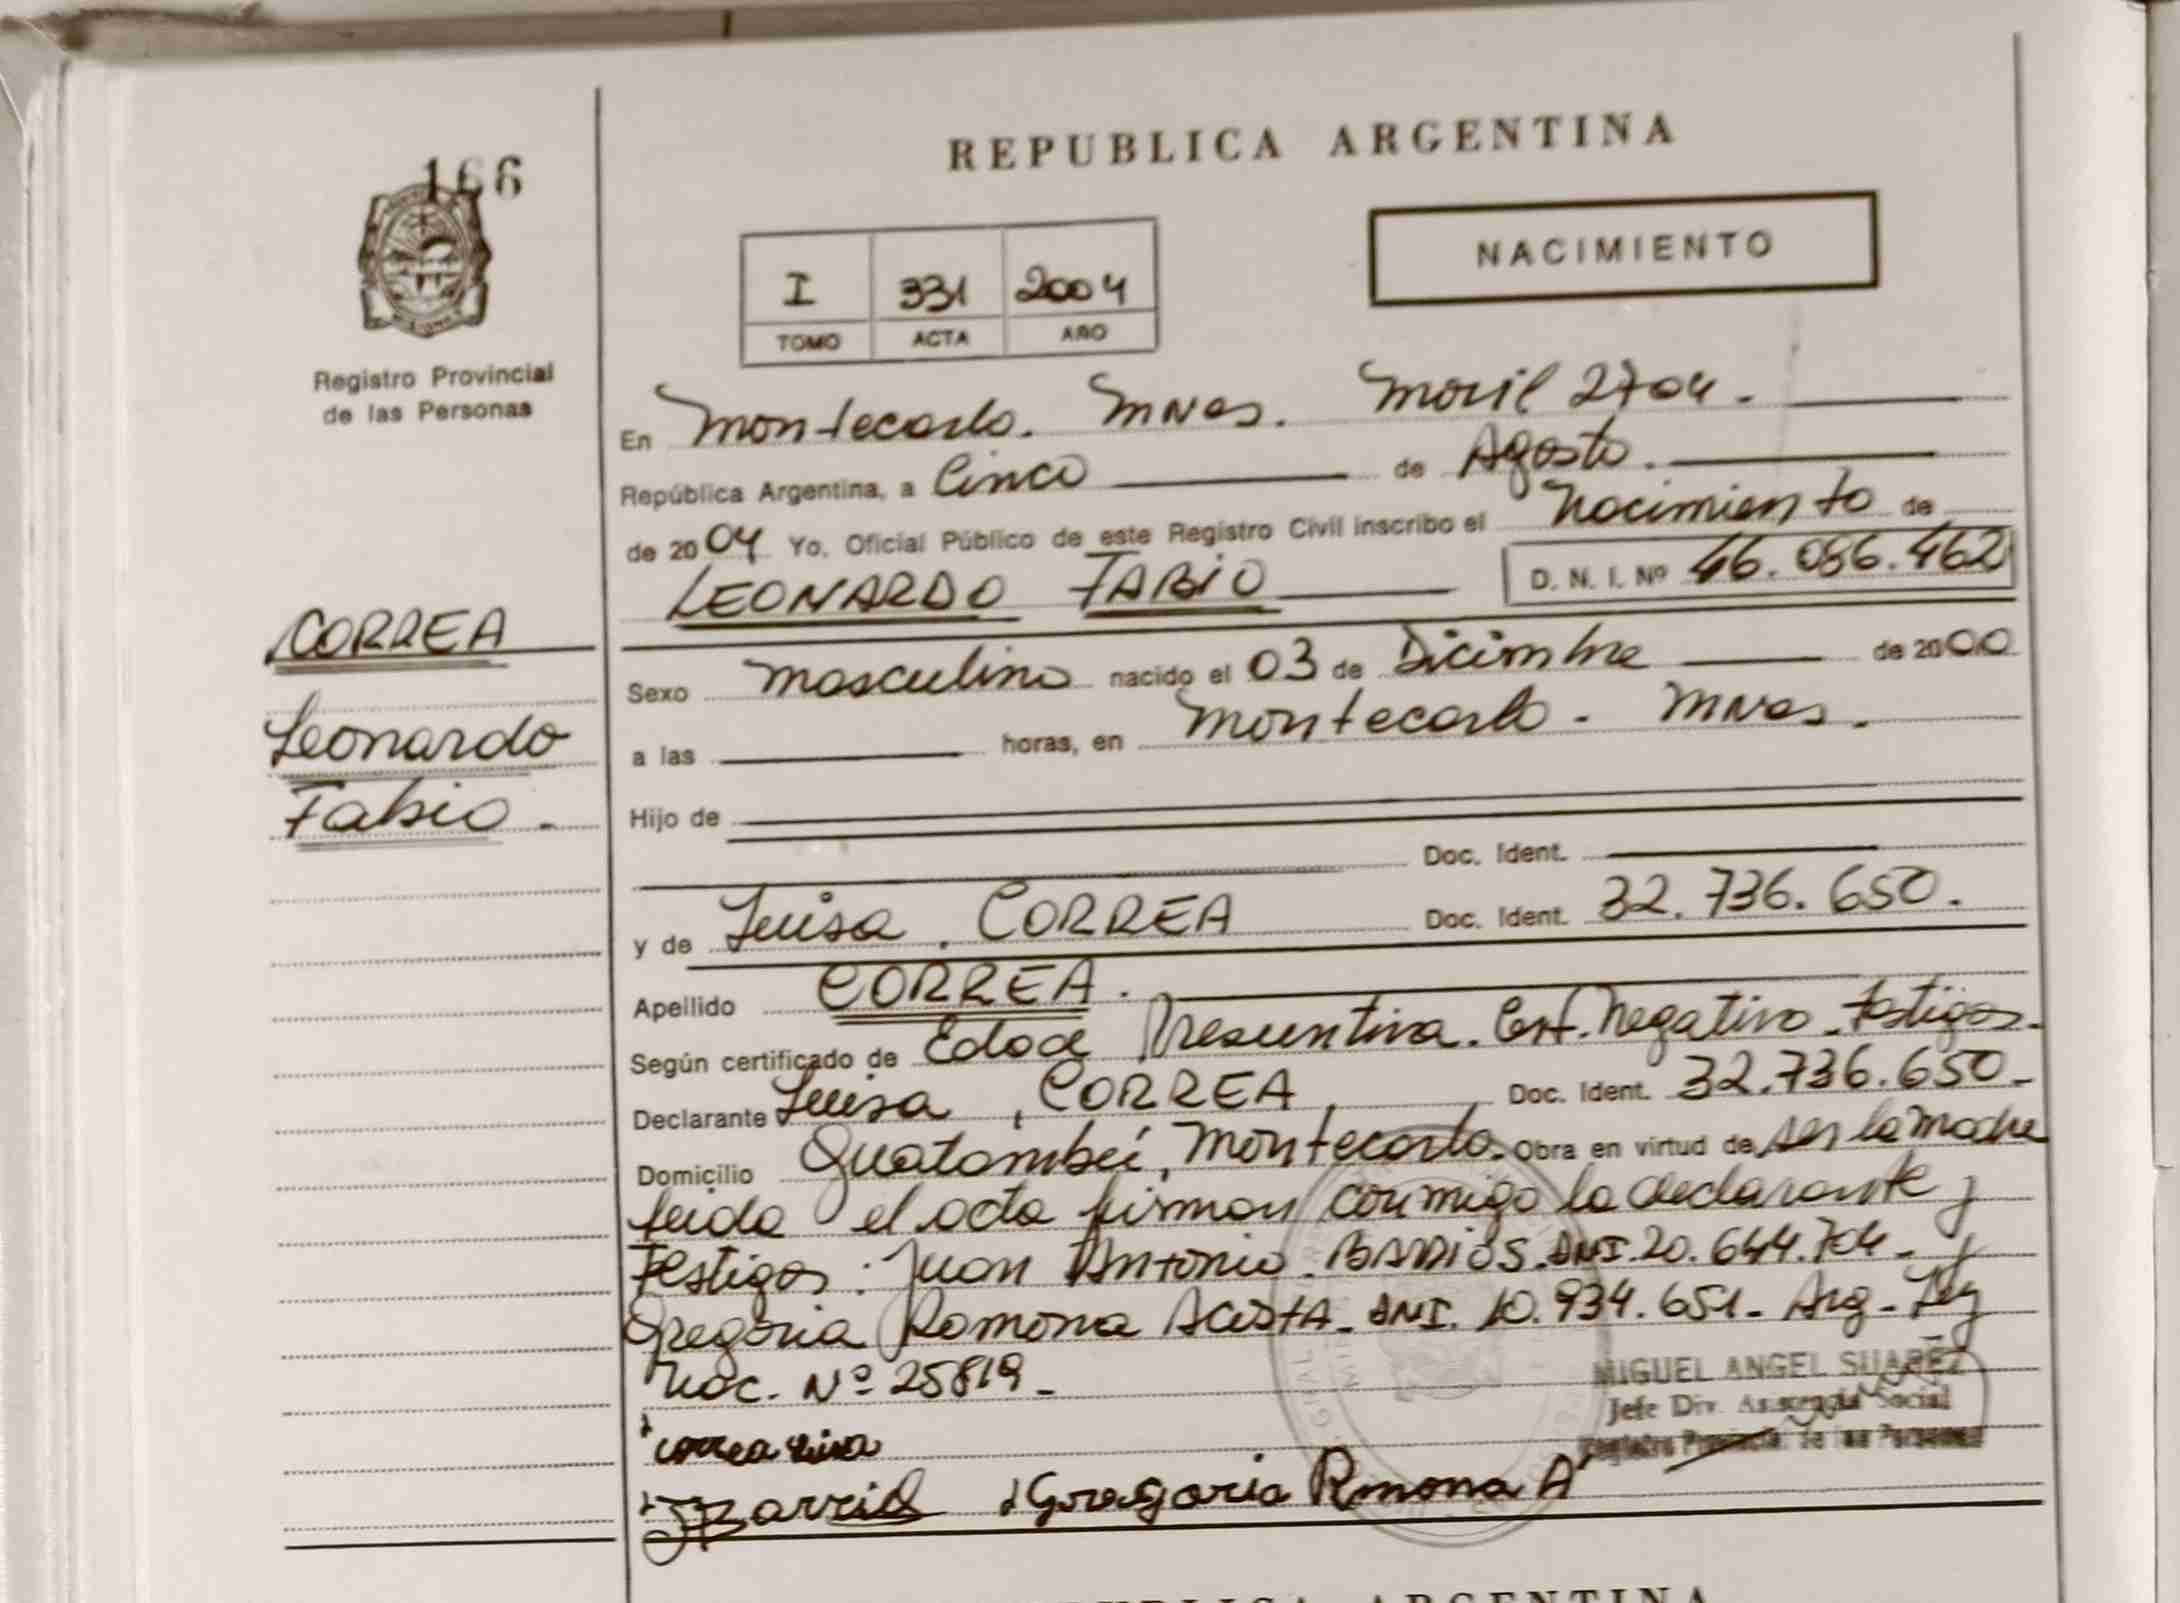 166
REPUBLICA ARGENTINA
NACIMIENTO
I 331 2004
TOMO ACTA AÑO
Registro Provincial
de las Personas
En Montecarlo. Mnes. Movil 2704.
República Argentina, a Cinco de Agosto.
de 2004 Yo, Oficial Público de este Registro Civil inscribo el Nacimiento de
LEONARDO FABIO D. N. I. Nº 46.086.462
CORREA
Leonardo
Fabio.
Sexo masculino nacido el 03 de Diciembre de 2000
a las horas, en Montecarlo. Mnes.
Hijo de
Doc. Ident.
y de Luisa, CORREA Doc. Ident. 32.736.650.
Apellido CORREA.
Según certificado de Edad Presuntiva. Cert. Negativo. Testigos.
Declarante Luisa, CORREA Doc. Ident. 32.736.650-
Domicilio Guatambú, Montecarlo. Obra en virtud de ser la madre
leida el acta firman conmigo la declarante y
Testigos: Juan Antonio BARRIOS. DNI. 20.644.704- y
Gregoria Ramona ACOSTA. DNI. 10.934.651- Arg- Ley
Nac. Nº 25819-
Correa Luisa
JBarrios Gregoria Rmona A
MIGUEL ANGEL SUAREZ
Jefe Div. Asistencia Social
Registro Provincial de las Personas
REPUBLICA ARGENTINA